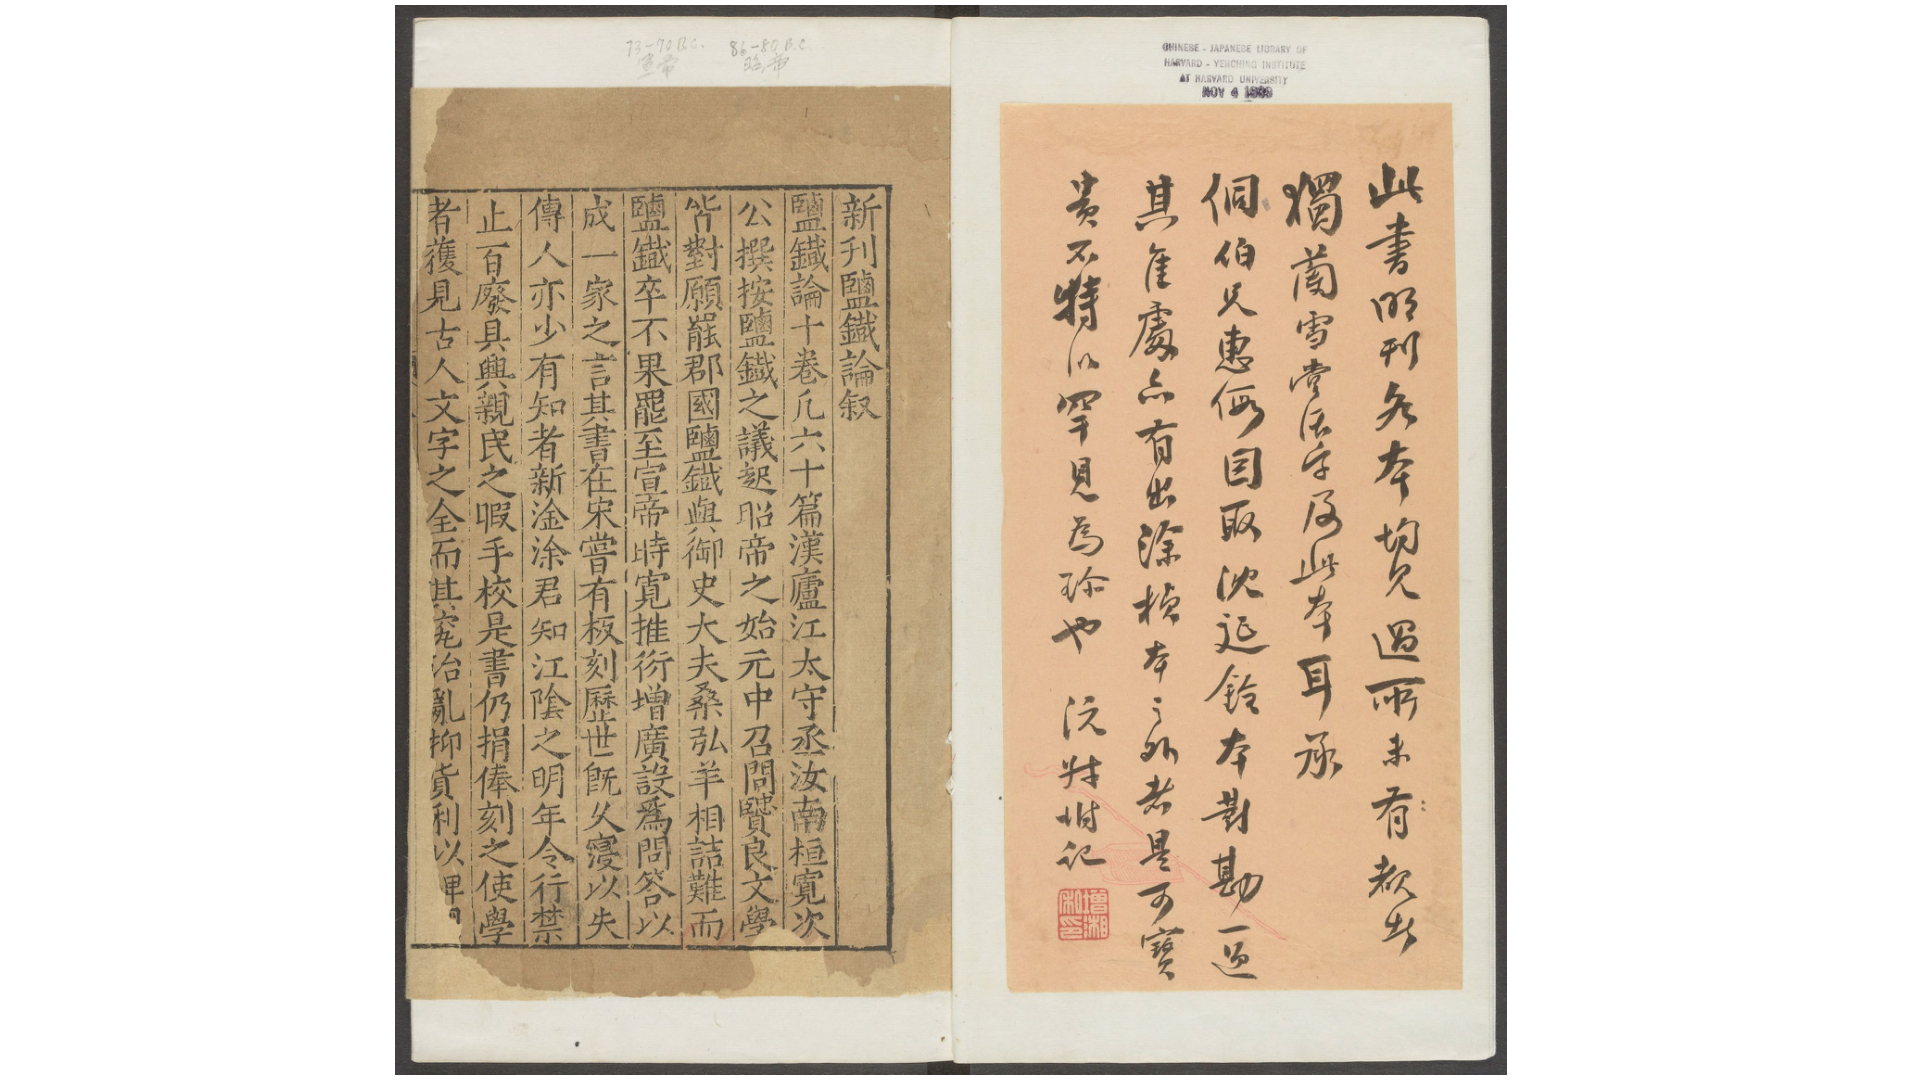 CHINESE - JAPANESE LIBRARY OF
HARVARD - YENCHING INSTITUTE
AT HARVARD UNIVERSITY
NOV 4 1939
此書明刊各本均見過所未有者
獨蘭雪堂活字及此本耳承
伯兄惠假因取沈延銓本對勘一過
其佳處亦有出涂楨本之外者是可寶
貴不特以罕見為珍也 沅叔坿記
增湘
私印
73-70 B.C.
宣帝
86-80 B.C.
昭帝
新刊鹽鐵論叙
鹽鐵論十卷凡六十篇漢廬江太守丞汝南桓寬次
公撰按鹽鐵之議起昭帝之始元中召問賢良文學
皆對願罷郡國鹽鐵與御史大夫桑弘羊相詰難而
鹽鐵卒不果罷至宣帝時寬推衍增廣設爲問答以
成一家之言其書在宋嘗有板刻歷世旣久寖以失
傳人亦少有知者新淦涂君知江陰之明年令行禁
止百廢具興親民之暇手校是書仍捐俸刻之使學
者獲見古人文字之全而其究治亂抑貨利以裨